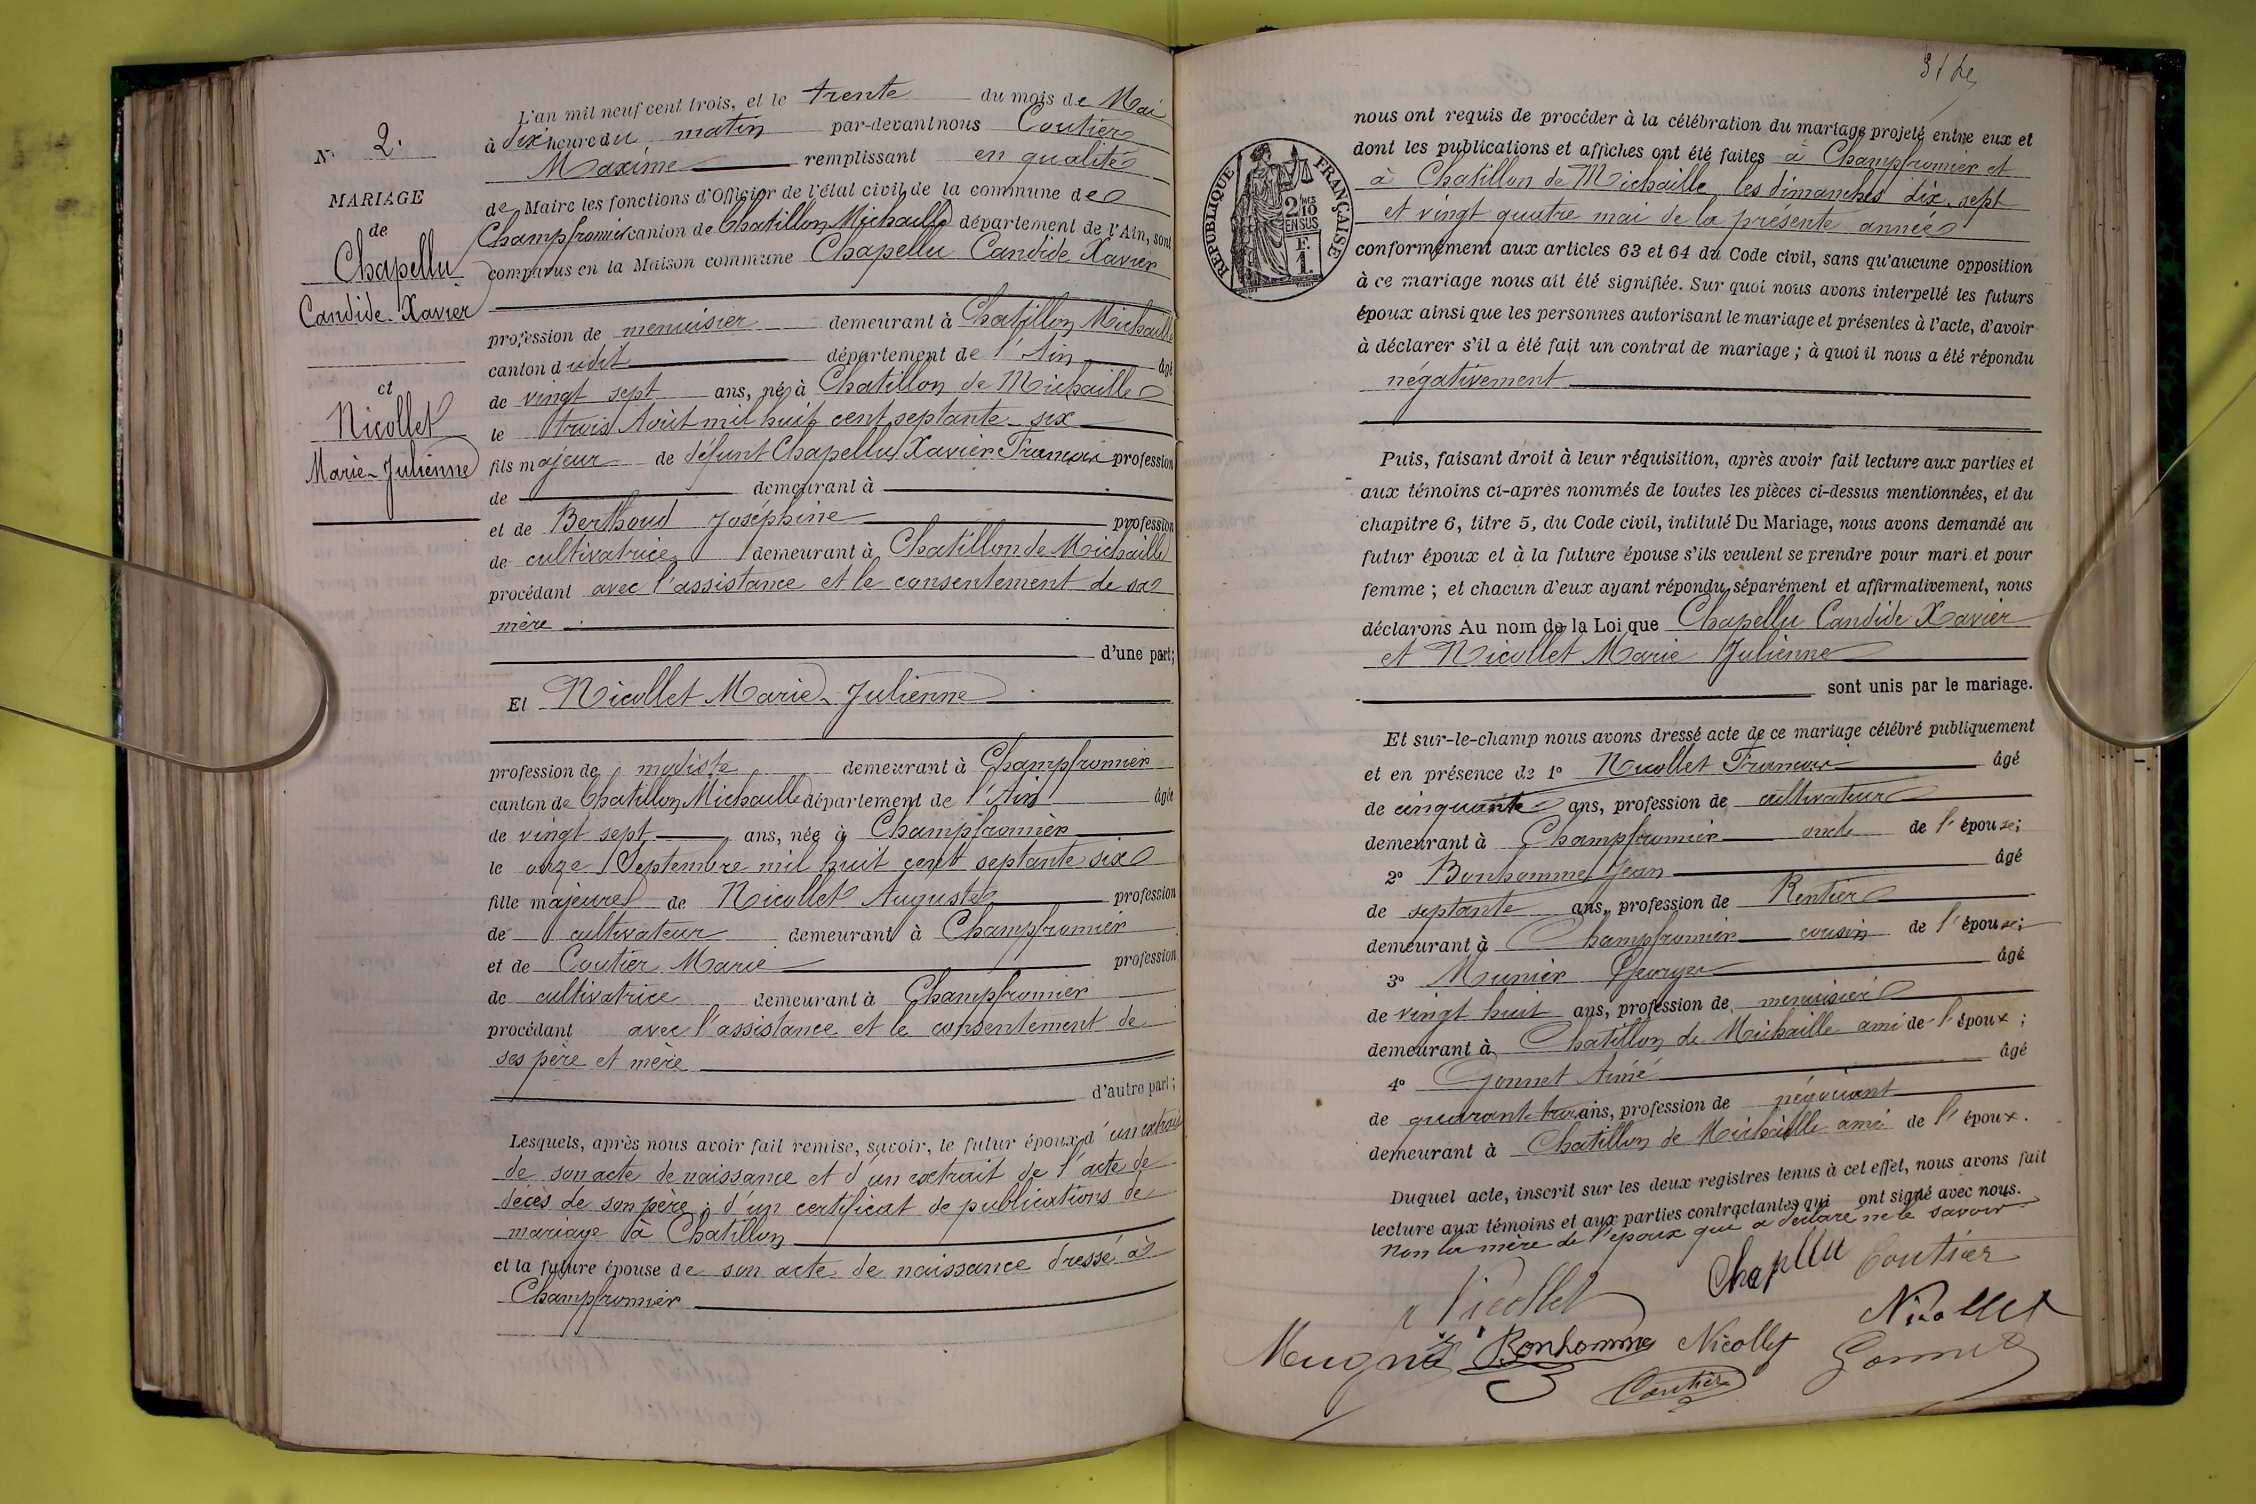 L'an mil neuf cent trois, et le trente du mois de Mai
à dix heure du matin par-devant nous Coutier
Maxime remplissant en qualité
de Maire les fonctions d'Officier de l'état civil de la commune de
Champfromier canton de Chatillon Michaille département de l'Ain, sont
comparus en la Maison commune Chapellu Candide Xavier
profession de menuisier demeurant à Chatillon Michaille
canton dudit département de l'Ain âgé
de vingt sept ans, né à Chatillon de Michaille
le trois Août mil huit cent septante six
fils majeur de défunt Chapellu Xavier François profession
de demeurant à
et de Berthoud Joséphine profession
de cultivatrice demeurant à Chatillon de Michaille
procédant avec l'assistance et le consentement de sa
mère
d'une part;
Et Nicollet Marie-Julienne
profession de modiste demeurant à Champfromier
canton de Chatillon Michaille département de l'Ain âgée
de vingt sept ans, née à Champfromier
le onze Septembre mil huit cent septante six
fille majeure de Nicollet Auguste profession
de cultivateur demeurant à Champfromier
et de Coutier Marie profession
de cultivatrice demeurant à Champfromier
procédant avec l'assistance et le consentement de
ses père et mère
d'autre part;
Lesquels, après nous avoir fait remise, savoir, le futur époux d'un extrait
de son acte de naissance et d'un extrait de l'acte de
décès de son père; d'un certificat de publications de
mariage à Chatillon
et la future épouse de son acte de naissance dressé à
Champfromier
N° 2.
MARIAGE
de
Chapellu
Candide-Xavier
et
Nicollet
Marie-Julienne
RÉPUBLIQUE FRANÇAISE
2/10 EN SUS
F. 1.
nous ont requis de procéder à la célébration du mariage projeté entre eux et
dont les publications et affiches ont été faites à Champfromier et
à Chatillon de Michaille, les dimanches dix-sept
et vingt quatre mai de la présente année
conformément aux articles 63 et 64 du Code civil, sans qu'aucune opposition
à ce mariage nous ait été signifiée. Sur quoi nous avons interpellé les futurs
époux ainsi que les personnes autorisant le mariage et présentes à l'acte, d'avoir
à déclarer s'il a été fait un contrat de mariage; à quoi il nous a été répondu
négativement
Puis, faisant droit à leur réquisition, après avoir fait lecture aux parties et
aux témoins ci-après nommés de toutes les pièces ci-dessus mentionnées, et du
chapitre 6, titre 5, du Code civil, intitulé Du Mariage, nous avons demandé au
futur époux et à la future épouse s'ils veulent se prendre pour mari et pour
femme; et chacun d'eux ayant répondu séparément et affirmativement, nous
déclarons Au nom de la Loi que Chapellu Candide Xavier
et Nicollet Marie Julienne
sont unis par le mariage.
Et sur-le-champ nous avons dressé acte de ce mariage célébré publiquement
et en présence de 1° Nicollet François âgé
de cinquante ans, profession de cultivateur
demeurant à Champfromier oncle de l'épouse;
2° Bonhomme Jean âgé
de septante ans, profession de Rentier
demeurant à Champfromier cousin de l'épouse;
3° Georges âgé
de vingt huit ans, profession de menuisier
demeurant à Chatillon de Michaille ami de l'époux;
4° Gonnet Aimé âgé
de quarante trois ans, profession de négociant
demeurant à Chatillon de Michaille ami de l'époux.
Duquel acte, inscrit sur les deux registres tenus à cet effet, nous avons fait
lecture aux témoins et aux parties contractantes qui ont signé avec nous.
Non la mère de l'époux qui a déclaré ne le savoir
Chapellu Coutier
Nicollet Nicollet
Bonhomme Nicollet Gonnet
Coutier